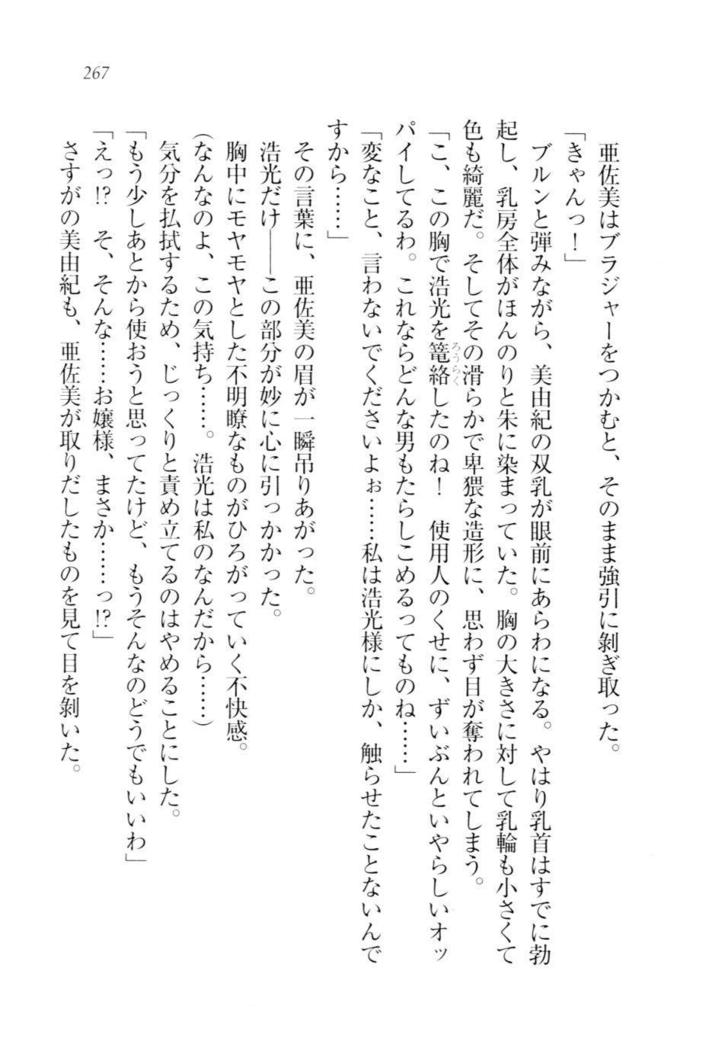 267
亜佐美はブラジャーをつかむと、そのまま強引に剝ぎ取った。
「きゃんっ！」
ブルンと弾みながら、美由紀の双乳が眼前にあらわになる。やはり乳首はすでに勃
起し、乳房全体がほんのりと朱に染まっていた。胸の大きさに対して乳輪も小さくて
色も綺麗だ。そしてその滑らかで卑猥な造形に、思わず目が奪われてしまう。
「こ、この胸で浩光を篭絡したのね！　使用人のくせに、ずいぶんといやらしいオッ
ろうらく
パイしてるわ。これならどんな男もたらしこめるってものね……」
「変なこと、言わないでくださいよぉ……私は浩光様にしか、触らせたことないんで
すから……」
その言葉に、亜佐美の眉が一瞬吊りあがった。
浩光だけ――この部分が妙に心に引っかかった。
胸中にモヤモヤとした不明瞭なものがひろがっていく不快感。
(なんなのよ、この気持ち……。浩光は私のなんだから……)
気分を払拭するため、じっくりと責め立てるのはやめることにした。
「もう少しあとから使おうと思ってたけど、もうそんなのどうでもいいわ」
「えっ!?　そ、そんな……お嬢様、まさか……っ!?」
さすがの美由紀も、亜佐美が取りだしたものを見て目を剝いた。